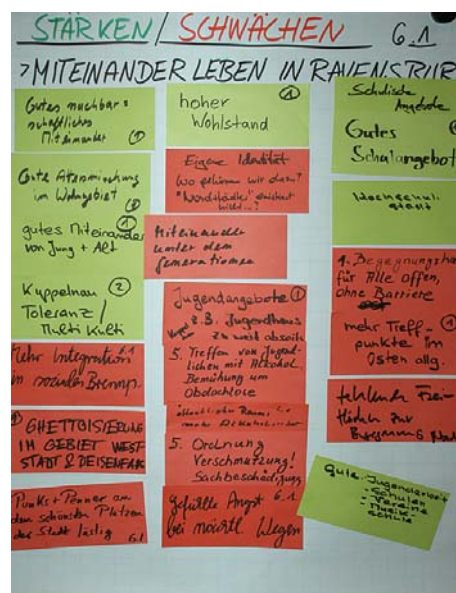 STÄRKEN / SCHWÄCHEN 6.1
> MITEINANDER LEBEN IN RAVENSBUR
Gutes nachbar-
schaftliches
Miteinander
Gute Altersmischung
im Wohngebiet
gutes Miteinander
von Jung + Alt
1
Kuppelnau 2
Toleranz /
Multi Kulti
Mehr Integration 6.1
in sozialen Brennp.
GHETTOISIERUNG
IM GEBIET WEST-
STADT & DEISENFANG
Punks + Penner an
den schönsten Plätzen
der Stadt lästig 6.1
hoher 1
Wohlstand
Eigene Identität
Wo gehören wir dazu?
"Nordstädter"
Miteinander
unter den
Generationen
Jugendangebote 1
z.B. Jugendhaus
zu weit abseits
5. Treffen von Jugend-
lichen mit Alkohol.
Bemühung um
Obdachlose
5. Ordnung
Verschmutzung!
Sachbeschädigung
gefühlte Angst 6.1.
bei nächtl. Wegen
Schulische
Angebote
Gutes
Schulangebot
Hochschul-
stadt
1. Begegnungsha
für Alle offen,
ohne Barriere
mehr Treff- 1
punkte im
Osten allg.
fehlende Frei-
flächen zur
Gute Jugendarbeit
- Schulen
- Vereine
- Musik-
schule